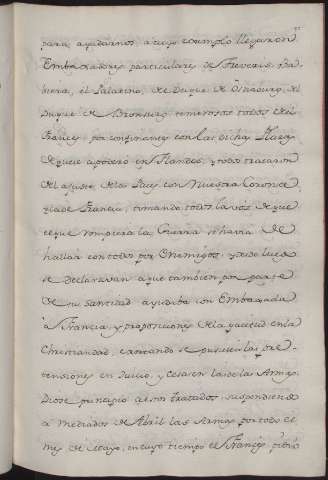 para ayudarnos a cuyo exemplo llegaron
Embaxadores particulares de Treveris, Ba-
biera, el Palatino, el Duque de Osnaburg, el
Duque de temerosos todos del
Frances, por confinantes con las dichas Plazas
de que se apodero en Flandes, y todos trataron
del ajuste de la Paz con Nuestra Corona,
y la de Francia, tomando todos la voz de que
el que rompiera la Guerra se havia de
hallar con todos por Enemigos, y desde luego
se declaravan a que tambien por parte
de su Santidad ayudaba con Embaxada
a Francia, y proposiciones de la quietud en la
Christiandad, cansando se pusiesen las pre-
tensiones en Juicio, y cesasen las de las Armas,
Diose principio a estos tratados, suspendiendo
a mediados de Abril las Armas por todo el
mes de Mayo, en cuyo tiempo el Frances pidio